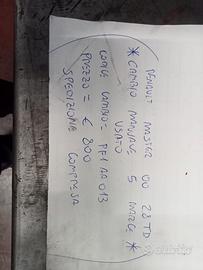 RENAULT MASTER 00 2.8 TD
* CAMBIO MANUALE 5 MARCE *
USATO
CODICE CAMBIO = PF1 AA 013
PREZZO = € 800
SPEDIZIONE COMPRESA
subito